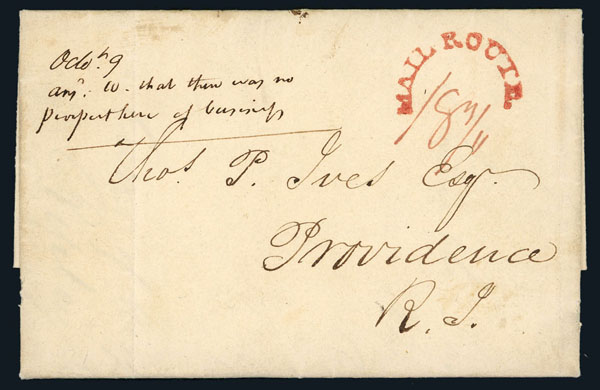 Octo.h 9
ansd. W. that there was no
prospect here of business
MAIL ROUTE.
18 3/4
Thos. P. Ives Esqr.
Providence
R. I.